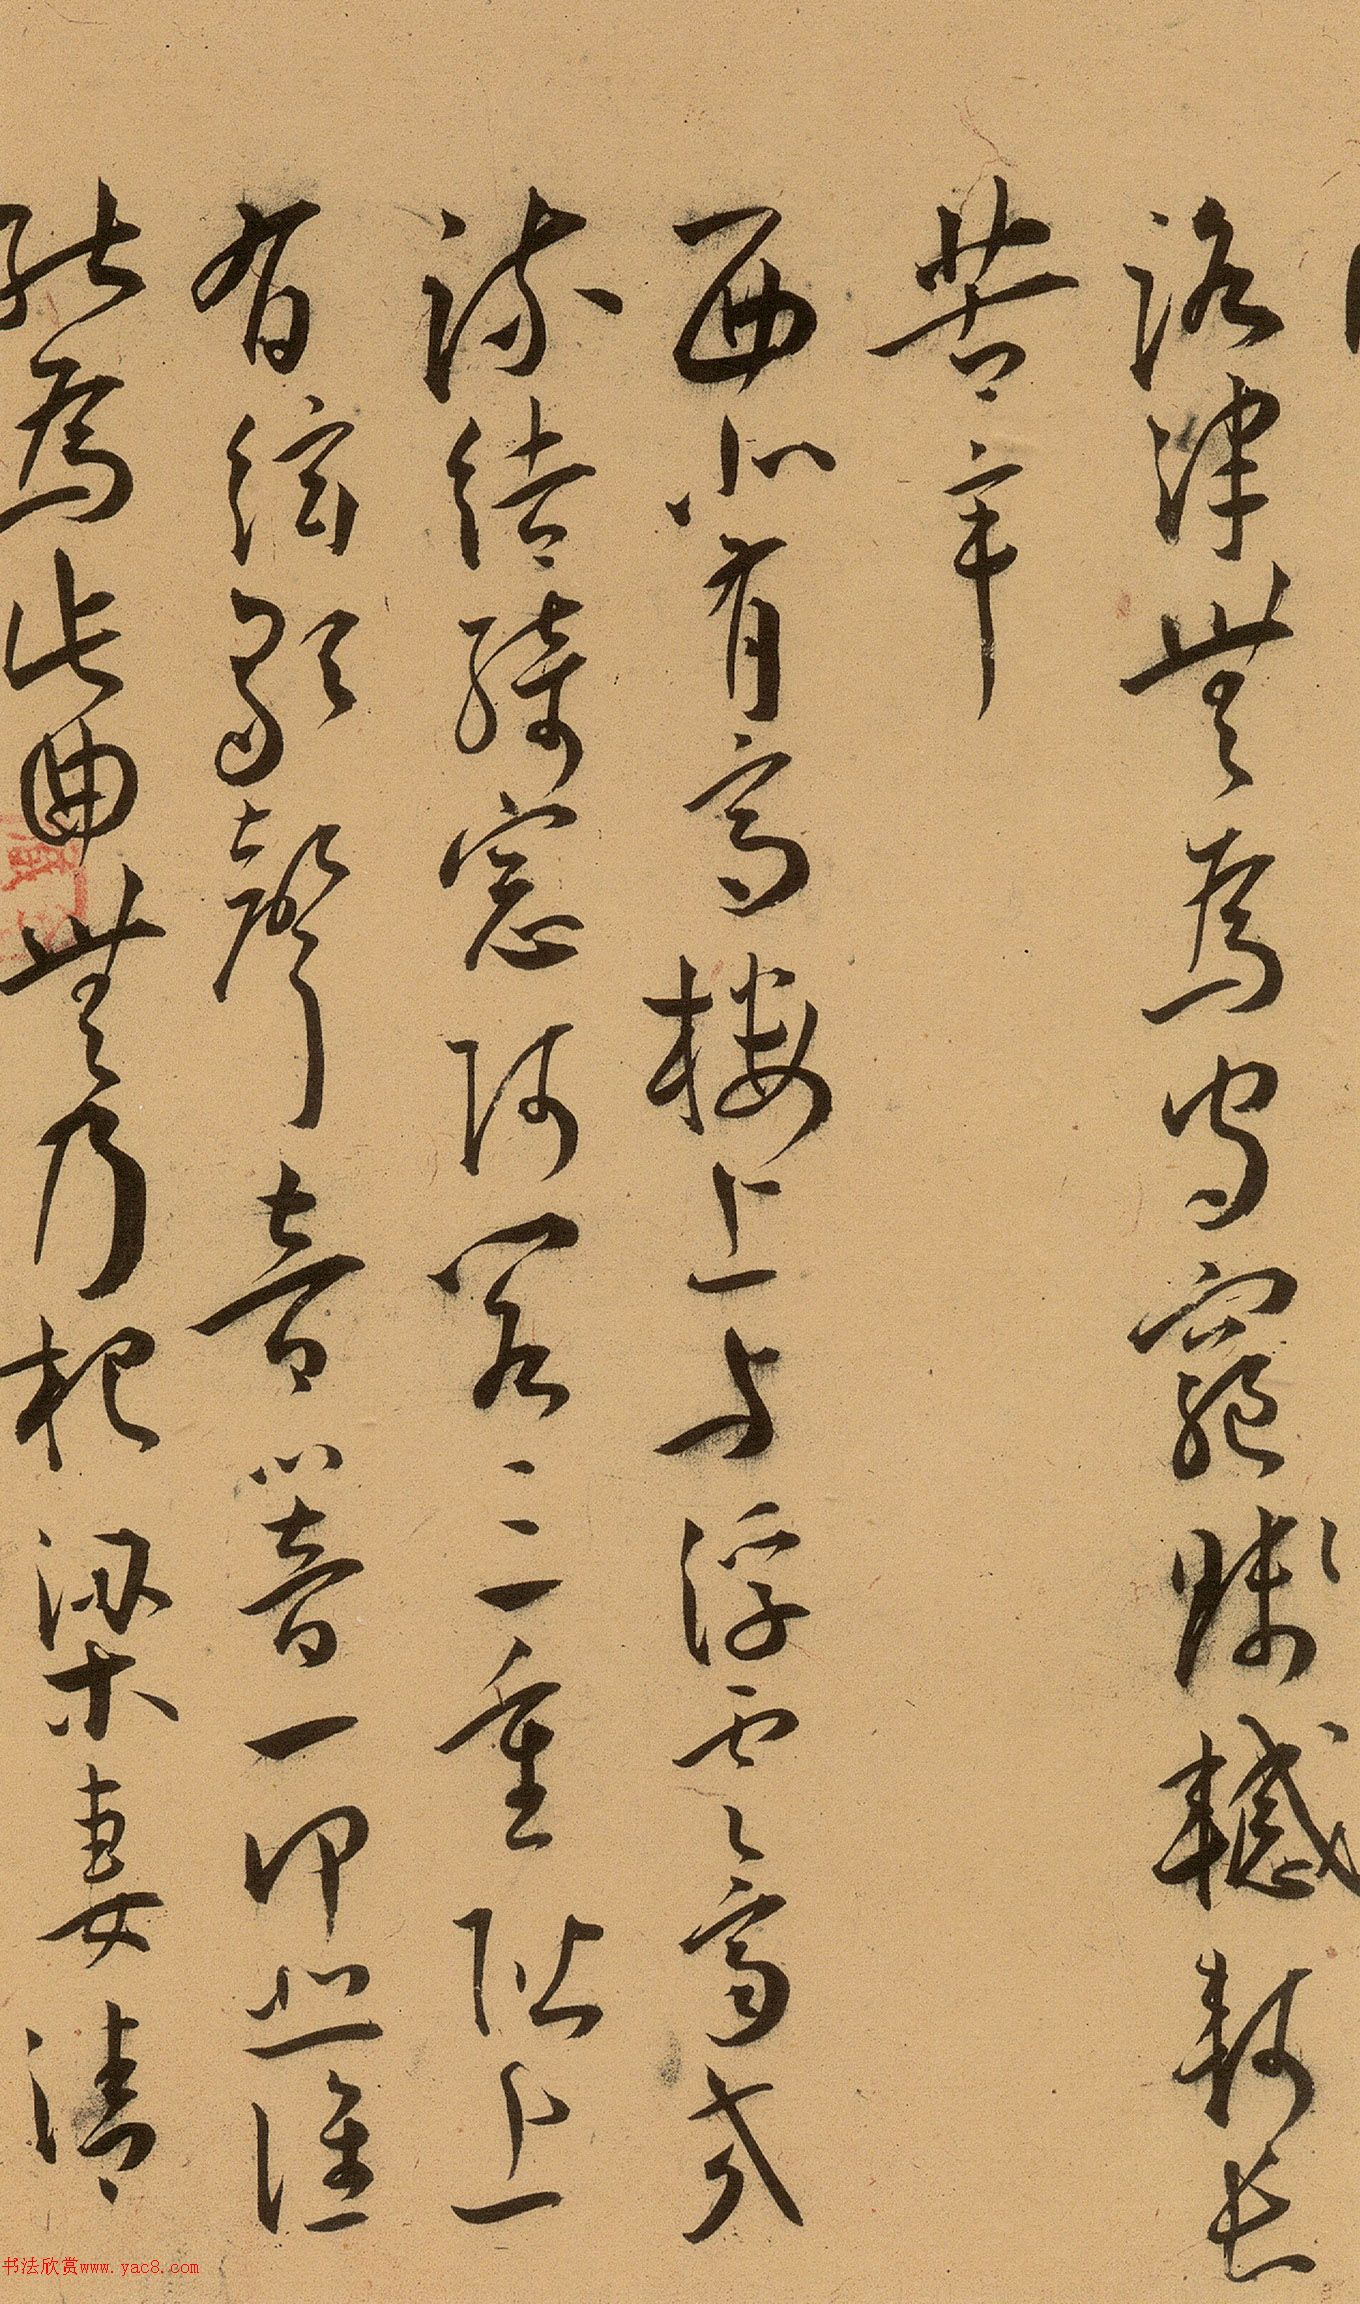 路津無為守窮賤轗軻長
苦辛
西北有高樓上與浮雲齊交
疏結綺窓阿閣三重階上
有絃歌聲音響一何悲誰
能為此曲無乃杞梁妻清
书法欣赏www.yac8.com